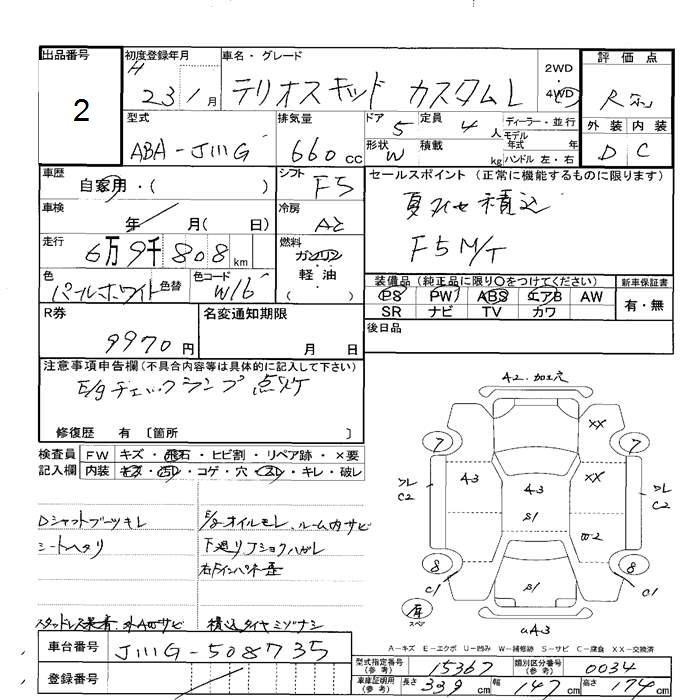 出品番号
2
初度登録年月
H 23 1月
車名・グレード
テリオスキッド カスタムL
2WD
・
4WD
評価点
R
外装 内装
D C
型式
ABA-J111G
排気量
660cc
ドア 5
定員 4人
形状 W
積載 kg
ディーラー・並行
モデル年式 年
ハンドル 左・右
車歴
自家用・( )
車検
年 月( 日)
走行
6万9千808km
色
パールホワイト
色替
色コード
W16
シフト
F5
冷房
AC
燃料
ガソリン
軽油
( )
セールスポイント(正常に機能するものに限ります)
夏タイヤ積込
F5 M/T
装備品(純正品に限り○をつけてください)
PS PW ABS エアB AW
SR ナビ TV カワ
新車保証書
有・無
後日品
R券
9970円
名変通知期限
月 日
注意事項申告欄(不具合内容等は具体的に記入して下さい)
E/gチェックランプ点灯
修復歴 有 〔箇所 〕
検査員記入欄
FW キズ・飛石・ヒビ割・リペア跡・×要
内装 キズ・汚レ・コゲ・穴・スレ・キレ・破レ
Dシャフトブーツキレ
シートヘタリ
E/gオイルモレ、ルーム内サビ
下廻りJショクハガレ
スタッドレス装着、
積込タイヤミゾナシ
A2.加工穴
XX
7
7
クレ
C2
A3
A3
XX
クレ
C2
S1
W2
8
8
C1
S1
C1
スペア
A-キズ E-エクボ U-凹み W-補修跡 S-サビ C-腐食 XX-交換済
車台番号
J111G-508735
登録番号
型式指定番号(参考)
15367
類別区分番号(参考)
0034
車庫証明用(参考)
長さ 339cm 幅 147cm 高さ 174cm